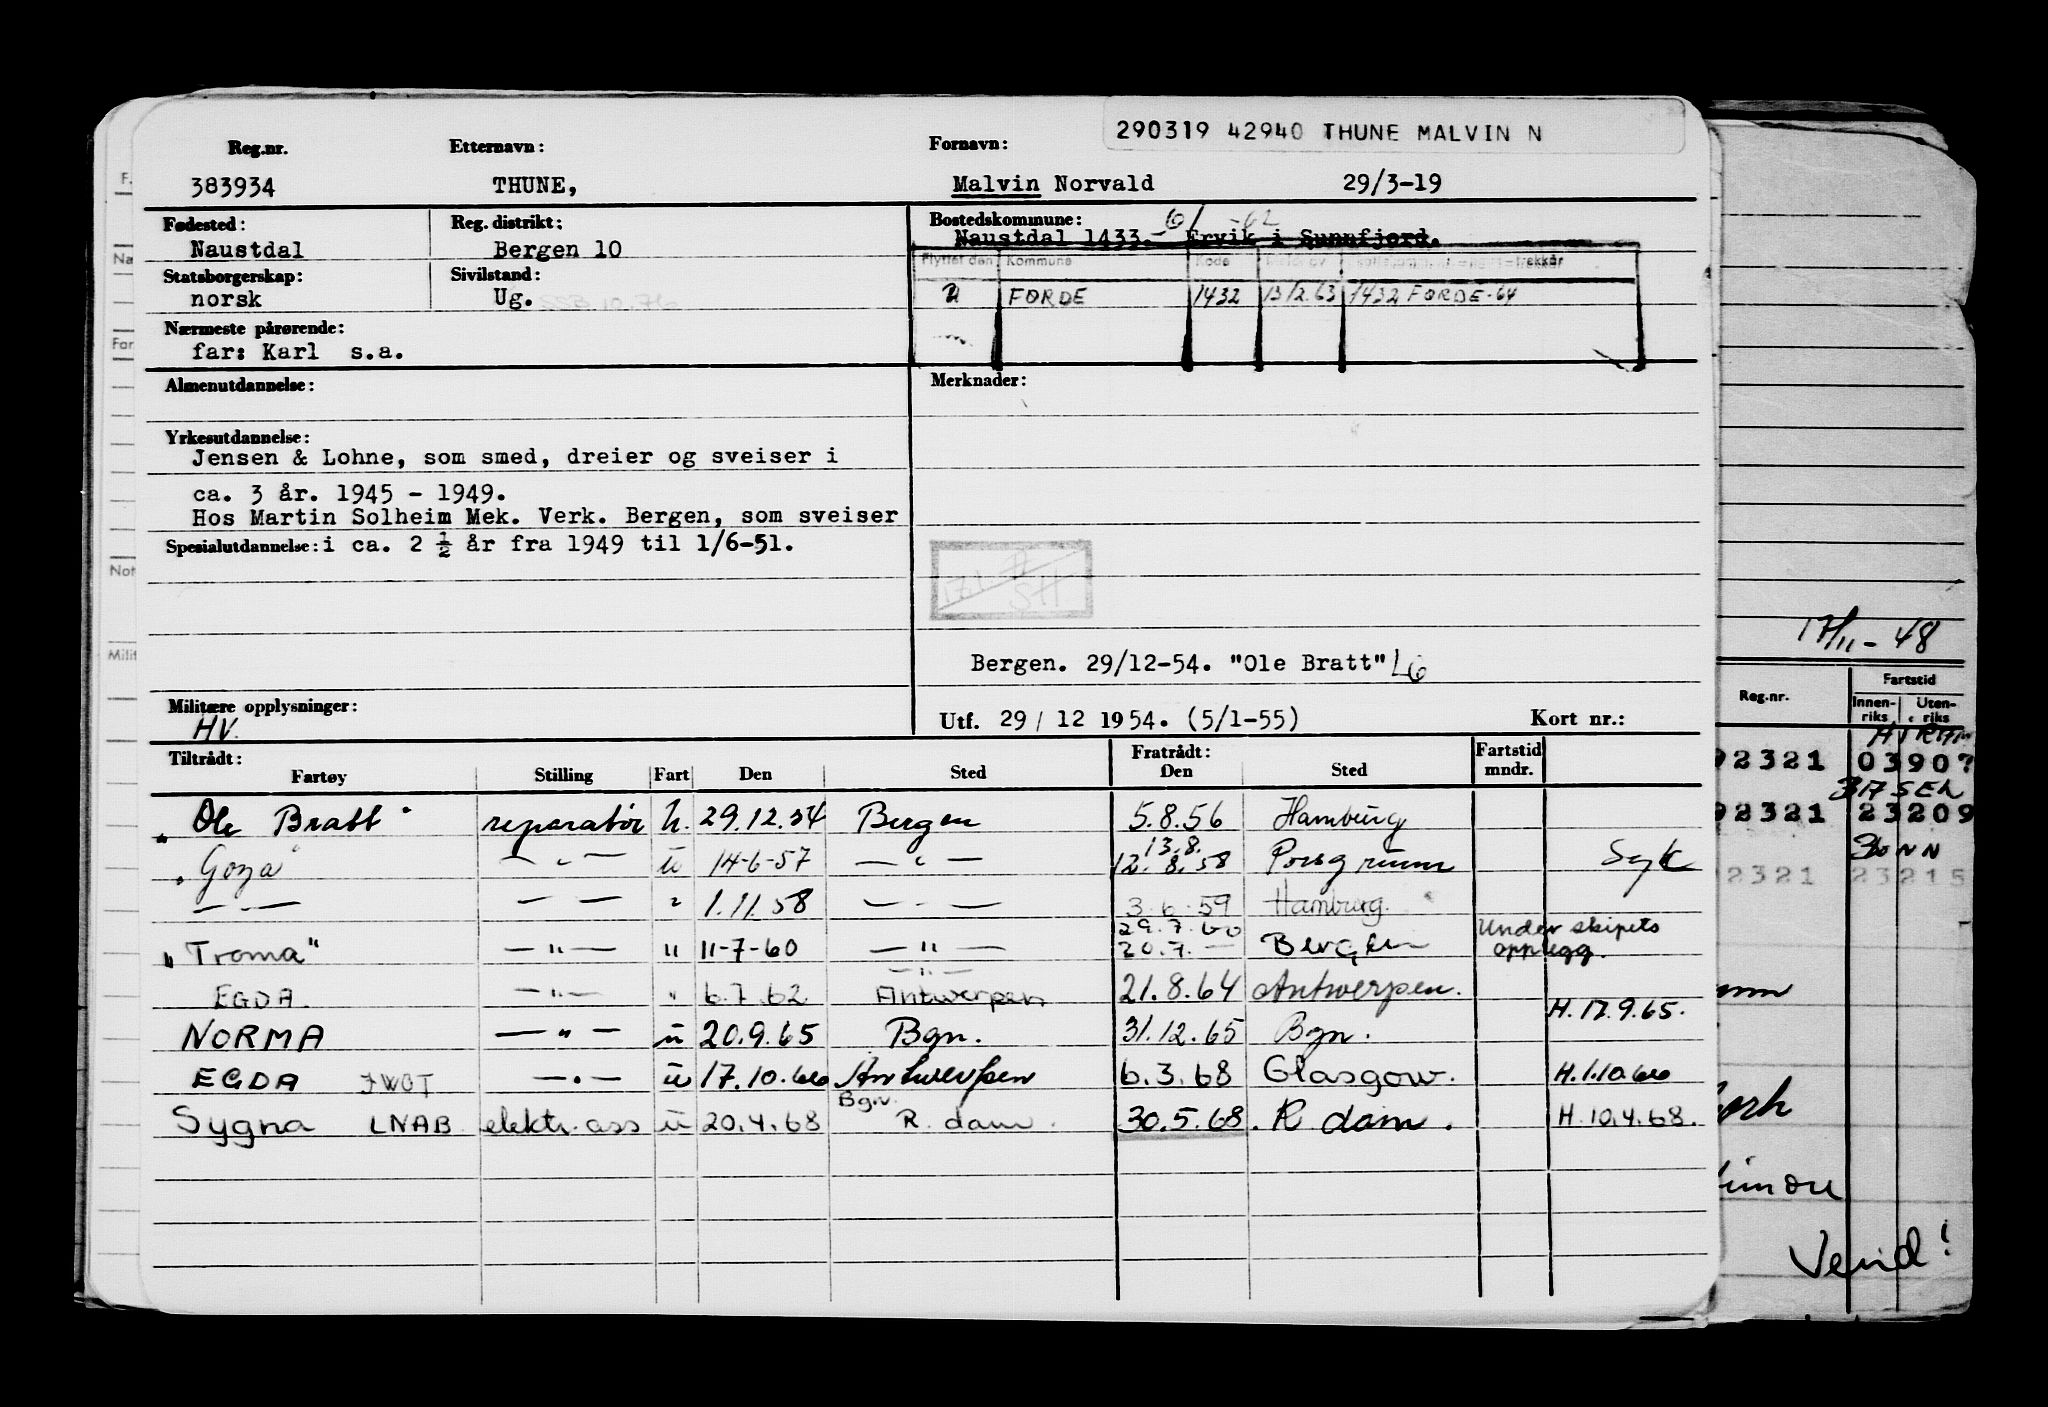 290319 42940 THUNE MALVIN N
Reg.nr. Etternavn: Fornavn:
383934 THUNE, Malvin Norvald 29/3-19
Fødested: Reg. distrikt: Bostedskommune: -61 -62
Naustdal Bergen 10 Naustdal 1433. Ervik i Sunnfjord.
Statsborgerskap: Sivilstand: Flyttet den Kommune Kode
norsk Ug. SSB.10.76 u FØRDE 1432 13/2.63 1432 FØRDE-64
Nærmeste pårørende:
far: Karl s.a.
Almenutdannelse: Merknader:
Yrkesutdannelse:
Jensen & Lohne, som smed, dreier og sveiser i
ca. 3 år. 1945 - 1949.
Hos Martin Solheim Mek. Verk. Bergen, som sveiser
Spesialutdannelse: i ca. 2 ½ år fra 1949 til 1/6-51.
Bergen. 29/12-54. "Ole Bratt" LG
Militære opplysninger: Utf. 29/ 12 1954. (5/1-55) Kort nr.:
HV.
Tiltrådt: Fratrådt: Fartstid
Fartøy Stilling Fart Den Sted Den Sted mndr.
"Ole Bratt" reparatör U. 29.12.54 Bergen 5.8.56 Hamburg
13.8.
"Goya" — " — ü 14-6-57 — " — 12.8.58 Porsgrunn Syk
— " — — " — " 1.11.58 — " — 3.6.59 Hamburg.
29.7.60 Under skipets
"Troma" — " — " 11-7-60 — " — 20.7. — Bergen opplegg.
— " —
EGDA. — " — " 6.7.62 Antwerpen 21.8.64 Antwerpen.
H. 17.9.65.
NORMA — " — ü 20.9.65 Bgn. 31.12.65 Bgn.
EGDA JWOT — " — ü 17.10.66 Antwerpen 6.3.68 Glasgow. H.1.10.66
Bgn.
Sygna LNAB elektr.ass ü 20.4.68 R.dam. 30.5.68. R dam. H.10.4.68.
F.
Na
Far
Not
Milit
17/11-48
Fartstid
Reg.nr. Innen-riks Uten-riks
92321 03907
92321 23209
92321 23215
Vend!